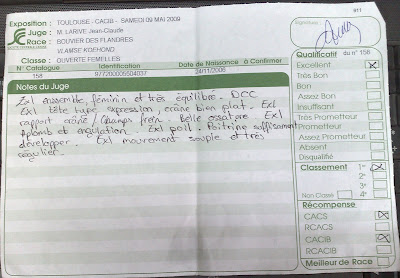 Exposition : TOULOUSE - CACIB - SAMEDI 09 MAI 2009
Juge : M. LARIVE Jean-Claude
Race : BOUVIER DES FLANDRES
VLAMSE KOEHOND
Classe : OUVERTE FEMELLES
N° Catalogue Identification Date de Naissance à Confirmer
158 977200005504037 24/11/2006
Notes du Juge
Exl ensemble, féminin et très équilibré. DCC
Exl tête type, expression, crâne bien plat. Exl
rapport crâne / chanfrein. Belle ossature. Exl
aplomb et angulation. Exl poil. Poitrine suffisament
développer. Exl mouvement souple et très
régulier.
Signature :
Qualificatif du n° 158
Excellent
Très Bon
Bon
Assez Bon
Insuffisant
Très Prometteur
Prometteur
Assez Prometteur
Absent
Disqualifié
Classement 1er
2e
3e
Non Classé 4e
Récompense
CACS
RCACS
CACIB
RCACIB
Meilleur de Race